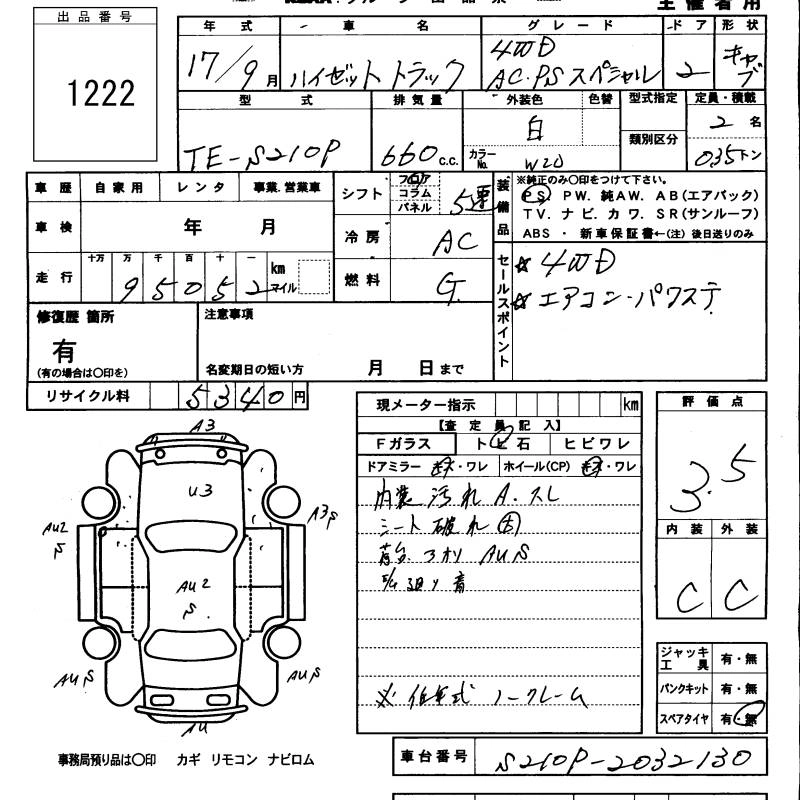 主催者用
出品番号
1222
年式 車名 グレード ドア 形状
17/9月 ハイゼットトラック 4WD AC.PS スペシャル 2 キャブ
型式 排気量 外装色 色替 型式指定 定員・積載
類別区分
TE-S210P 660c.c. 白 カラーNo. W20 2名 035トン
車歴 自家用 レンタ 事業.営業車
車検 年 月
走行 十万 万 千 百 十 一
95052 km マイル
シフト フロア コラム パネル 5速
冷房 AC
燃料 G
装備品
※純正のみ〇印をつけて下さい。
PS PW. 純AW. AB(エアバック)
TV. ナビ. カワ. SR(サンルーフ)
ABS ・ 新車保証書←(注) 後日送りのみ
セールスポイント
☆ 4WD
☆ エアコン・パワステ
修復歴 箇所
有
(有の場合は〇印を)
注意事項
名変期日の短い方 月 日まで
リサイクル料 5340円
現メーター指示 km
【査定員記入】
Fガラス トビ石 ヒビワレ
ドアミラー ・ワレ ホイール(CP) ・ワレ
内装 汚れ A.スレ
シート 破れ
荷台 アオリ AUS
廻り
※ 低年式 ノークレーム
評価点
3.5
内装 外装
C C
ジャッキ工具 有・無
パンクキット 有・無
スペアタイヤ 有・無
A3
U3
AU2 S
A3S
AU2 S
AUS
AUS
AU
事務局預り品は〇印 カギ リモコン ナビロム
車台番号 S210P-2032130